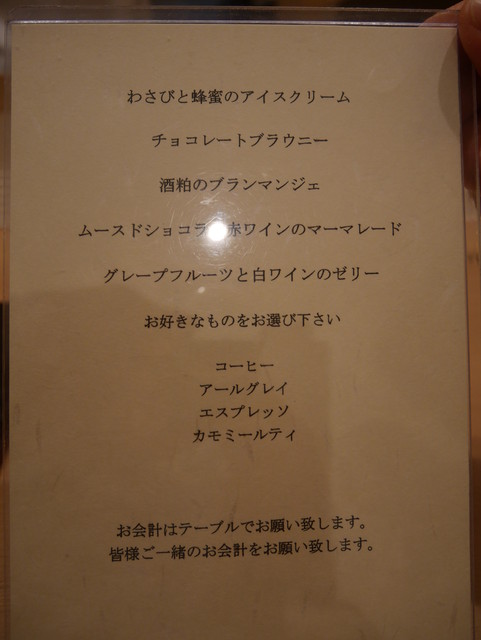 わさびと蜂蜜のアイスクリーム
チョコレートブラウニー
酒粕のブランマンジェ
ムースドショコラ 赤ワインのマーマレード
グレープフルーツと白ワインのゼリー
お好きなものをお選び下さい
コーヒー
アールグレイ
エスプレッソ
カモミールティ
お会計はテーブルでお願い致します。
皆様ご一緒のお会計をお願い致します。